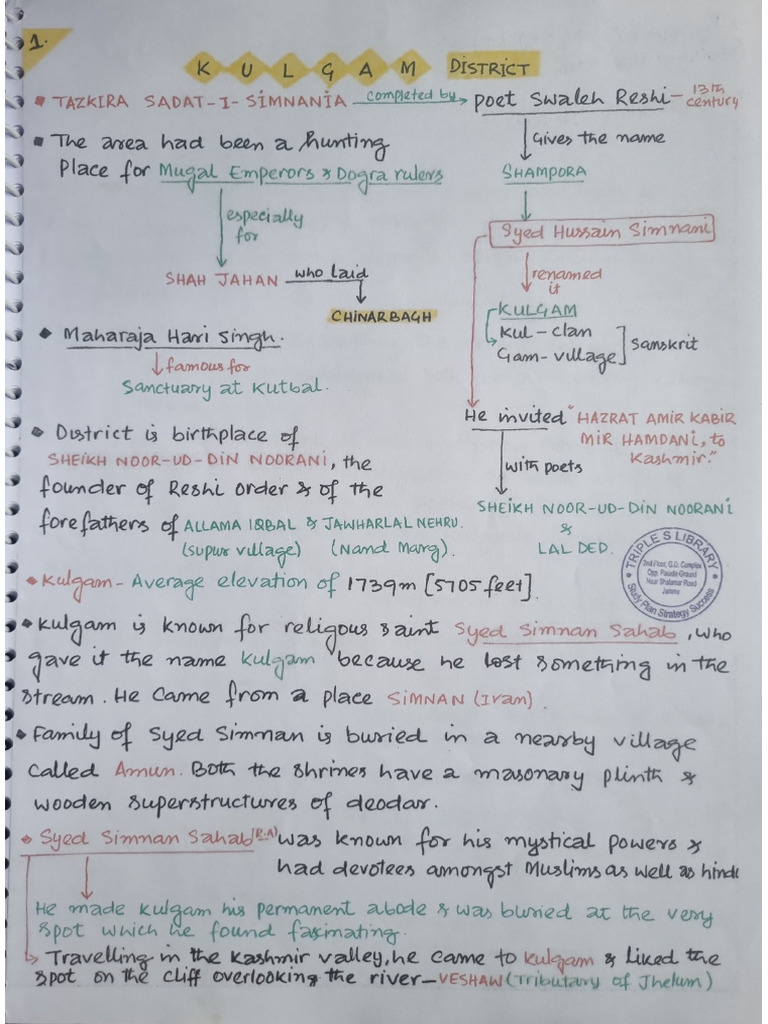 1.
KULGAM DISTRICT
• TAZKIRA SADAT-I-SIMNANIA completed by → poet Swaleh Reshi - 13th century
Gives the name
SHAMPORA
Syed Hussain Simnani
renamed it
KULGAM
Kul - clan
Gam - village ] Sanskrit
He invited "HAZRAT AMIR KABIR
MIR HAMDANI, to
Kashmir."
with poets
SHEIKH NOOR-UD-DIN NOORANI
&
LAL DED.
• The area had been a hunting
Place for Mugal Emperors & Dogra rulers
especially
for
SHAH JAHAN who laid
CHINARBAGH
• Maharaja Hari Singh.
famous for
Sanctuary at Kutbal.
• District is birthplace of
SHEIKH NOOR-UD-DIN NOORANI, the
founder of Reshi order & of the
forefathers of ALLAMA IQBAL & JAWHARLAL NEHRU.
(supur village) (Nand Marg).
TRIPLE S LIBRARY
2nd Floor, G.D. Complex
Opp. Parade Ground
Near Shalamar Road
Jammu
Study Plan Strategy Success
• Kulgam - Average elevation of 1739m [5705 feet]
• Kulgam is known for religous saint Syed Simnan Sahab, who
gave it the name Kulgam because he lost something in the
stream. He came from a place SIMNAN (Iran).
• Family of Syed Simnan is buried in a nearby village
called Amun. Both the shrines have a masonary plinth &
wooden superstructures of deodar.
• Syed Simnan Sahab (R.A) was known for his mystical powers &
had devotees amongst Muslims as well as hindu
He made Kulgam his permanent abode & was buried at the very
spot which he found fascinating.
Travelling in the Kashmir valley, he came to Kulgam & liked the
spot on the cliff overlooking the river - VESHAW (Tributary of Jhelum)